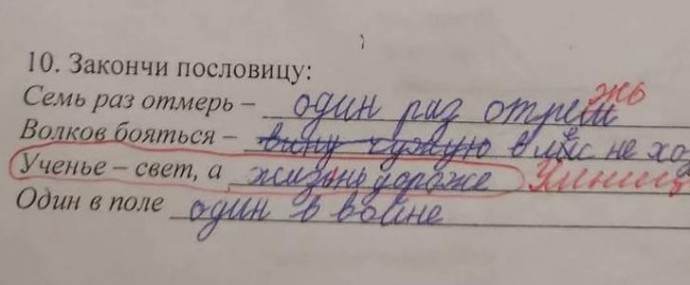 10. Закончи пословицу:
Семь раз отмерь – один раз отреш жь
Волков бояться – вину чужую в лес не хо
Ученье – свет, а жизнь дороже
Один в поле один в войне